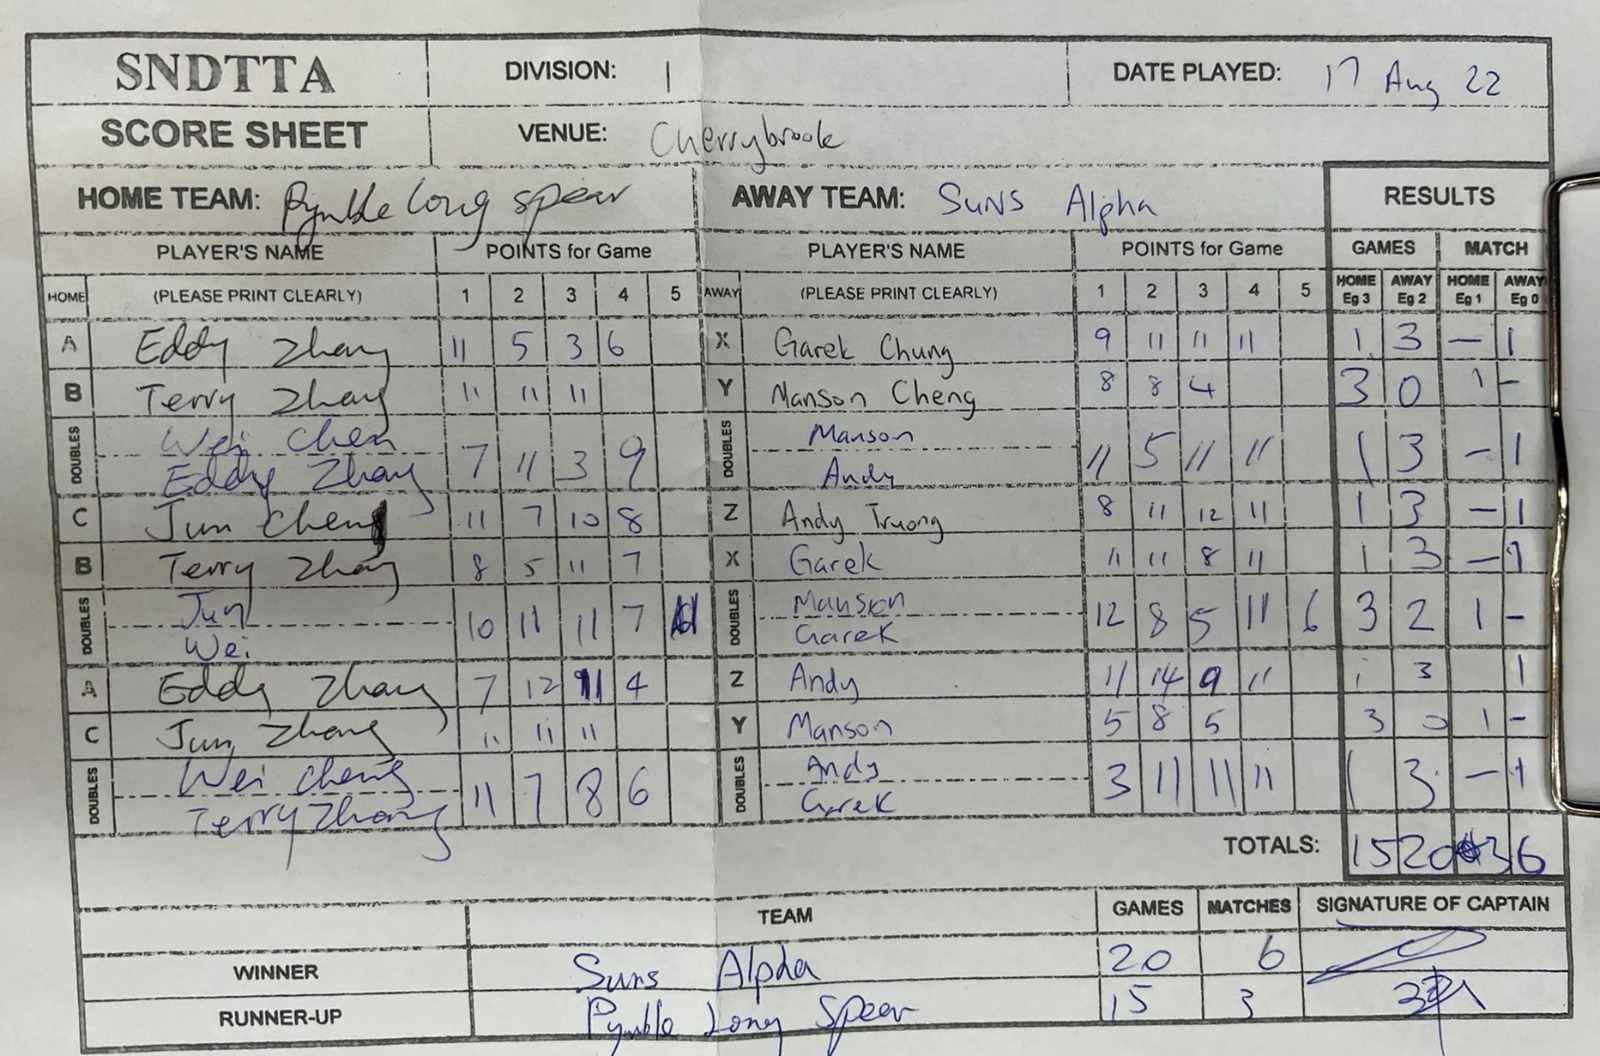 SNDTTA DIVISION: 1 DATE PLAYED: 17 Aug 22
SCORE SHEET VENUE: Cherrybrook
HOME TEAM: Pymble Long Spear AWAY TEAM: Suns Alpha RESULTS
PLAYER'S NAME POINTS for Game PLAYER'S NAME POINTS for Game GAMES MATCH
HOME (PLEASE PRINT CLEARLY) 1 2 3 4 5 AWAY (PLEASE PRINT CLEARLY) 1 2 3 4 5 HOME Eg 3 AWAY Eg 2 HOME Eg 1 AWAY Eg 0
A Eddy Zhang 11 5 3 6 X Garek Chung 9 11 11 11 1 3 - 1
B Terry Zhang 11 11 11 Y Manson Cheng 8 8 4 3 0 1 -
DOUBLES Wei Chen 7 11 3 9 DOUBLES Manson 11 5 11 11 1 3 - 1
Eddy Zhang Andy
C Jun Chen 11 7 10 8 Z Andy Truong 8 11 12 11 1 3 - 1
B Terry Zhang 8 5 11 7 X Garek 11 11 8 11 1 3 - 1
DOUBLES Jun 10 11 11 7 11 DOUBLES Manson 12 8 5 11 6 3 2 1 -
Wei Garek
A Eddy Zhang 7 12 11 4 Z Andy 11 14 9 11 1 3 1
C Jun Zhang 11 11 11 Y Manson 5 8 5 3 0 1 -
DOUBLES Wei Cheng 11 7 8 6 DOUBLES Andy 3 11 11 11 1 3 - 1
Terry Zhang Garek
TOTALS: 15 20 3 6
TEAM GAMES MATCHES SIGNATURE OF CAPTAIN
WINNER Suns Alpha 20 6
RUNNER-UP Pymble Long Spear 15 3